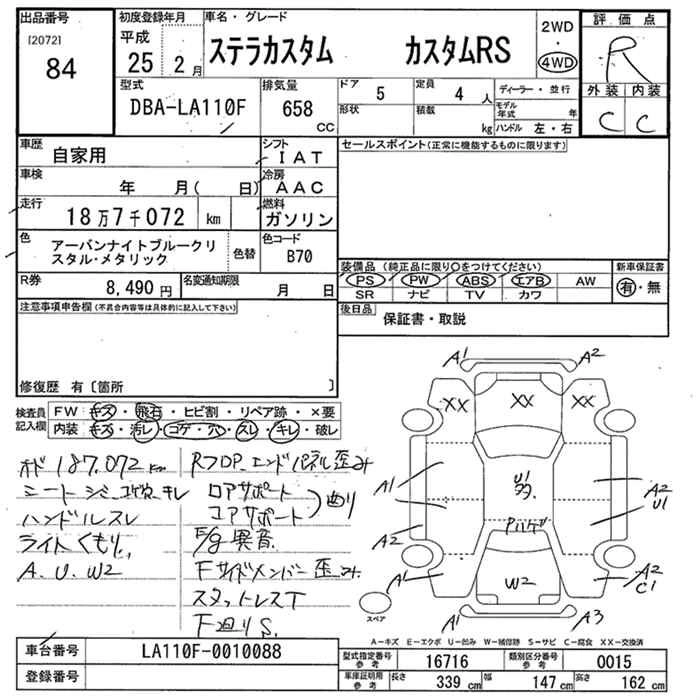 出品番号
[2072]
84
初度登録年月
平成
25 2月
車名・グレード
ステラカスタム カスタムRS
2WD
・
4WD
評価点
R
外装 内装
C C
型式
DBA-LA110F
排気量
658
CC
ドア
5
形状
定員
4人
積載
kg
ディーラー・並行
モデル年式 年
ハンドル 左・右
車歴
自家用
シフト
IAT
車検
年 月( 日)
冷房
AAC
走行
18万7千072 km
燃料
ガソリン
色
アーバンナイトブルークリ
スタル・メタリック
色替
色コード
B70
R券
8,490円
名変通知期限
月 日
セールスポイント(正常に機能するものに限ります)
装備品(純正品に限り○をつけてください)
PS PW ABS エアB AW
SR ナビ TV カワ
新車保証書
有・無
後日品
保証書・取説
注意事項申告欄(不具合内容等は具体的に記入して下さい)
修復歴 有〔箇所 〕
検査員
記入欄
FW キズ・飛石・ヒビ割・リペア跡・×要
内装 キズ・汚レ・コゲ・穴・スレ・キレ・破レ
187,072 km
ハンドルスレ
ライトくもり
A. U. W2
RフロP. エンドパネル歪み
ロアサポート
コアサポート
曲り
E/g異音
Fサイドメンバー歪み
スタットレスT
F廻りS.
A1 A2
XX XX XX
A1
A2
U1
A2
U1
A1
W2
A2
C1
A1 A3
スペア
A-キズ E-エクボ U-凹み W-補修跡 S-サビ C-腐食 XX-交換済
車台番号
LA110F-0010088
登録番号
型式指定番号
参考
16716
類別区分番号
参考
0015
車庫証明用
参考
長さ 339 cm 幅 147 cm 高さ 162 cm